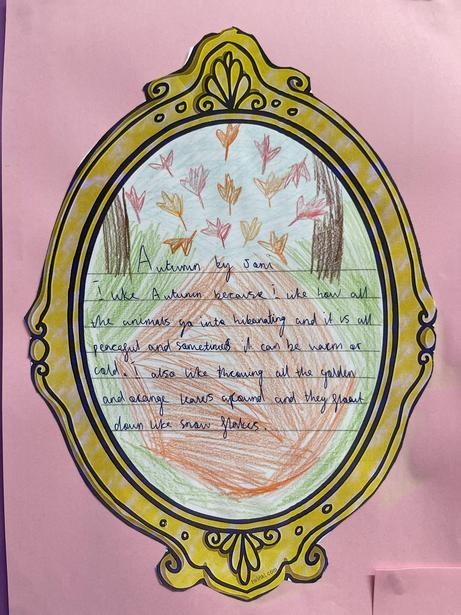 Autumn by Joni
I like Autumn because I like how all
the animals go into hibanating and it is all
peaceful and sometimes it can be warm or
cold. I also like throwing all the golden
and orange leaves around and they float
down like snow flakes.